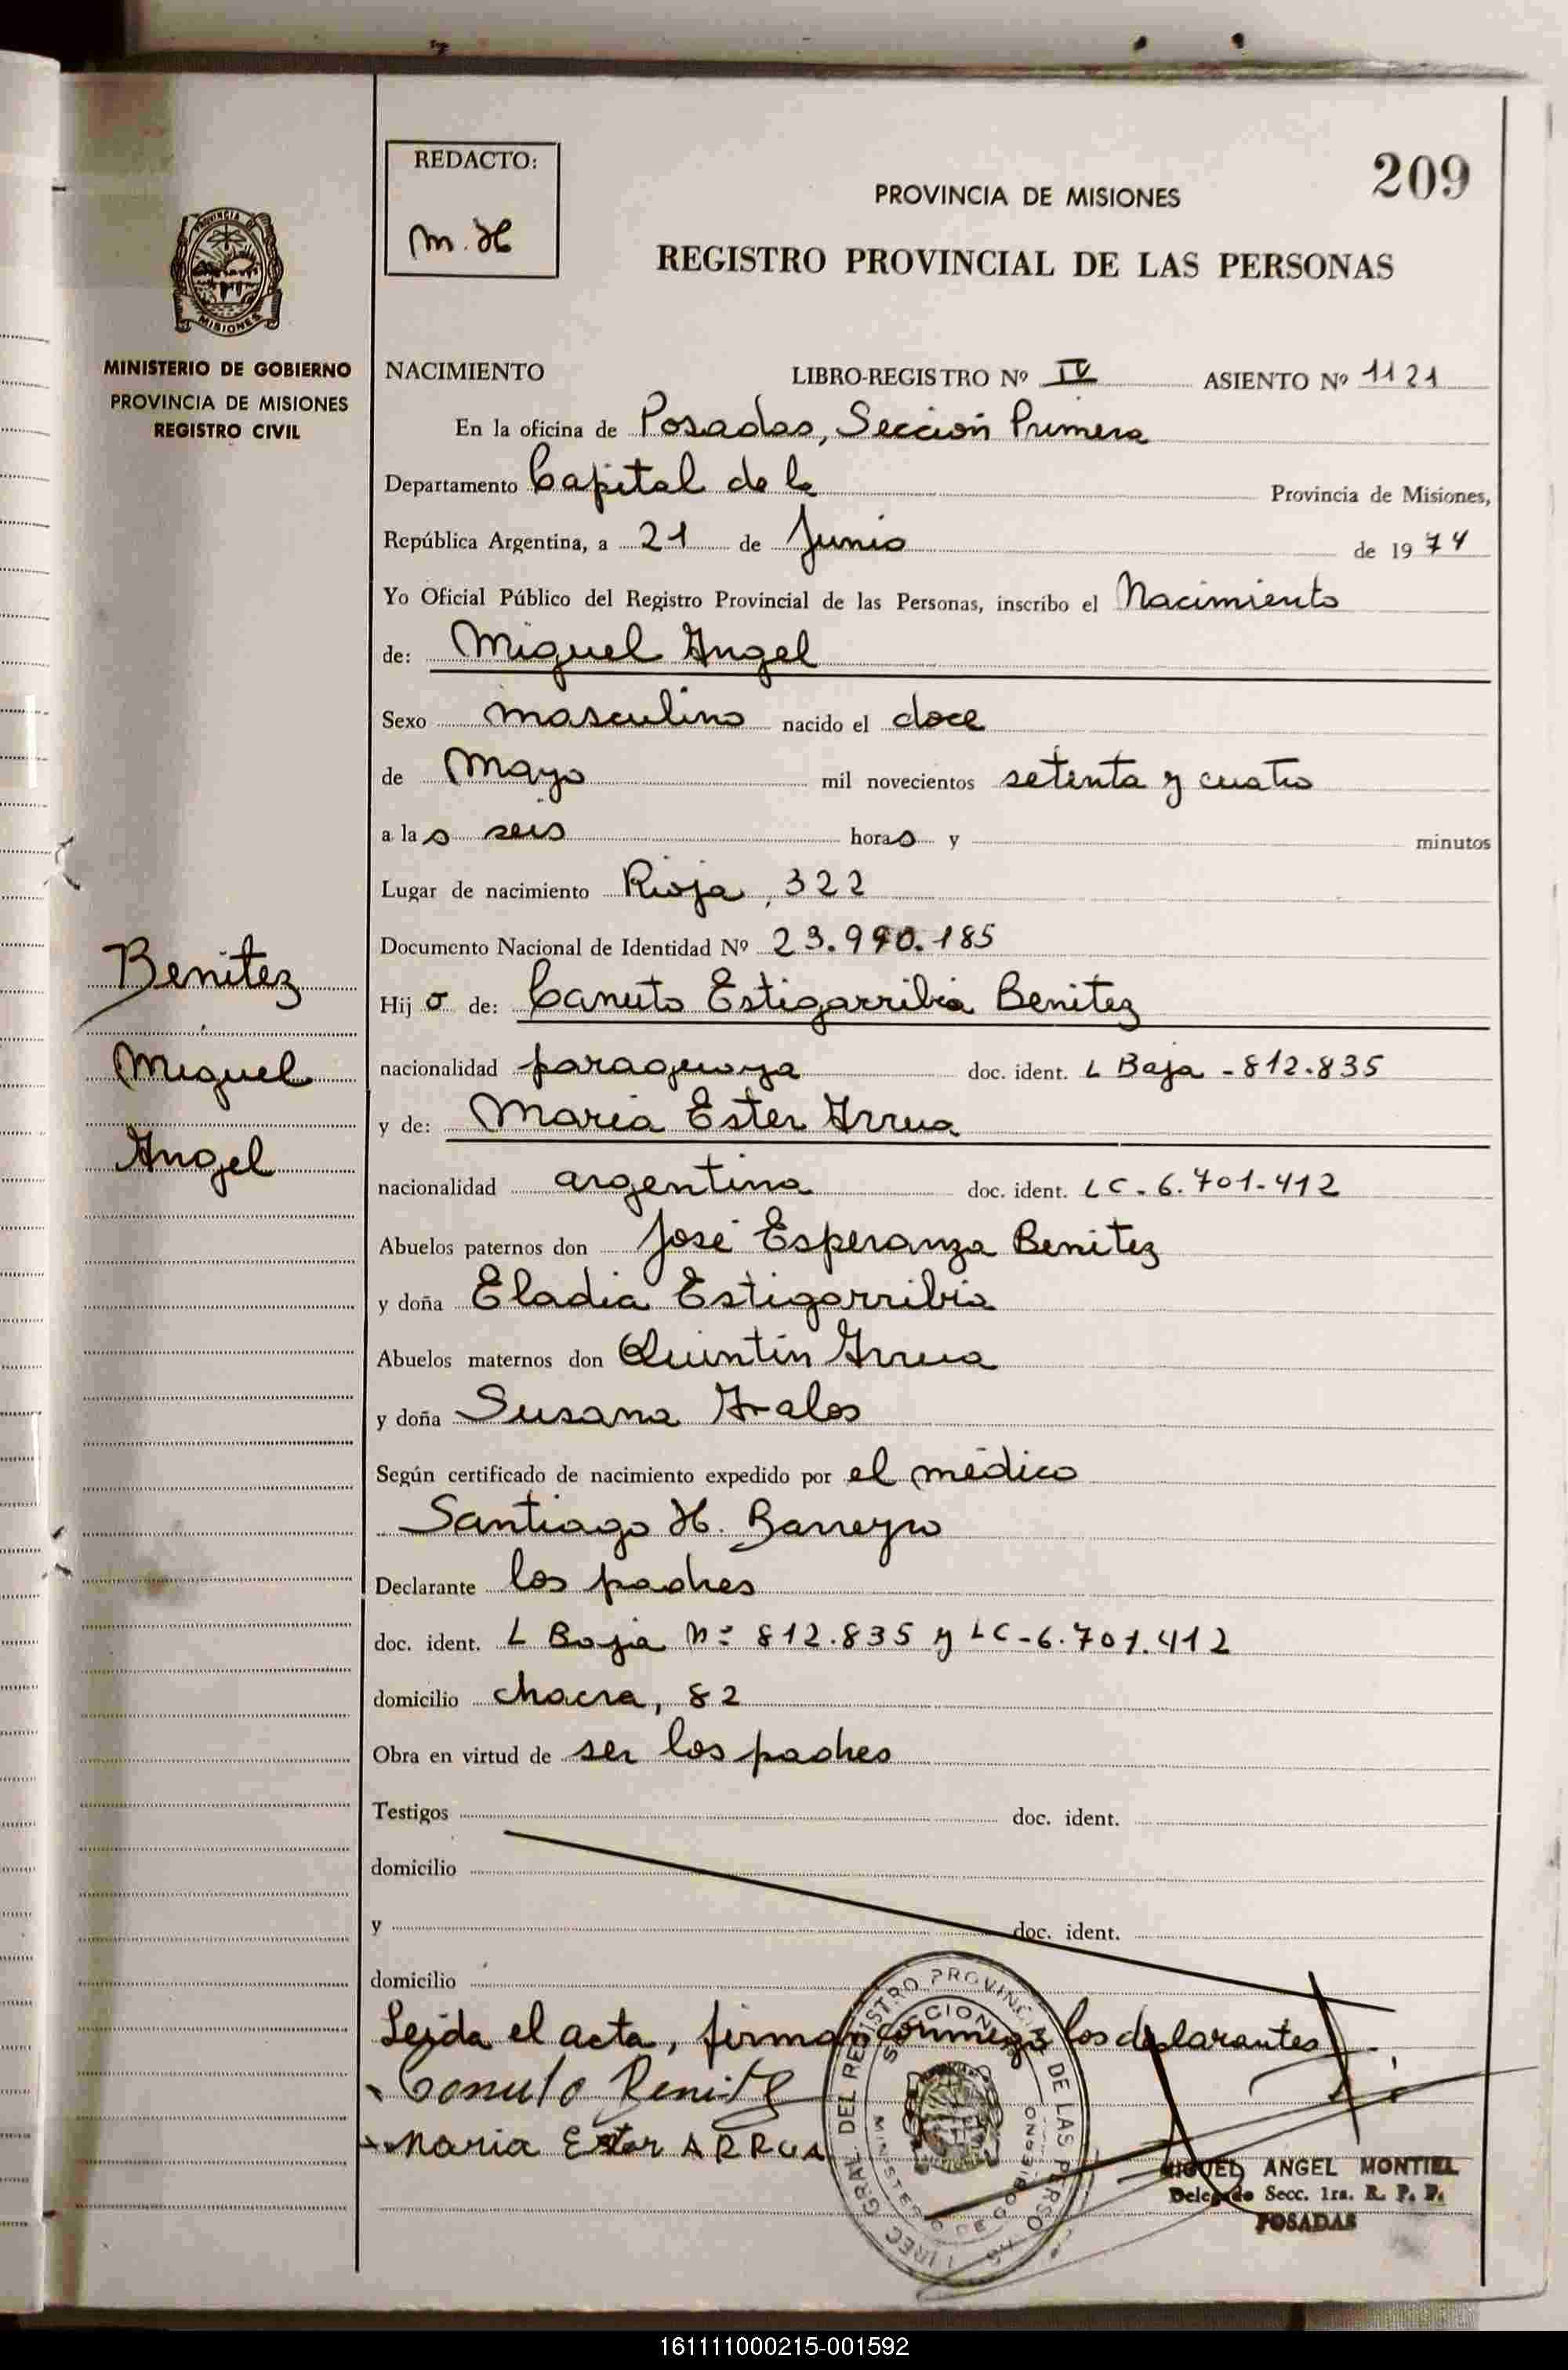 209
REDACTO:
m. H
PROVINCIA DE MISIONES
REGISTRO PROVINCIAL DE LAS PERSONAS
PROVINCIA
MISIONES
MINISTERIO DE GOBIERNO
PROVINCIA DE MISIONES
REGISTRO CIVIL
NACIMIENTO LIBRO-REGISTRO Nº IV ASIENTO Nº 1121
En la oficina de Posadas, Sección Primera
Departamento Capital de la Provincia de Misiones,
República Argentina, a 21 de Junio de 1974
Yo Oficial Público del Registro Provincial de las Personas, inscribo el Nacimiento
de: Miguel Angel
Sexo masculino nacido el doce
de Mayo mil novecientos setenta y cuatro
a las seis horas y minutos
Lugar de nacimiento Rioja, 322
Documento Nacional de Identidad Nº 23.990.185
Benitez
Miguel
Angel
Hijo de: Canuto Estigarribia Benitez
nacionalidad paraguaya doc. ident. L Baja - 812.835
y de: Maria Ester Arrua
nacionalidad argentina doc. ident. LC. 6.701.412
Abuelos paternos don José Esperanza Benitez
y doña Eladia Estigarribia
Abuelos maternos don Quintin Arrua
y doña Susana Avalos
Según certificado de nacimiento expedido por el médico
Santiago H. Barreyro
Declarante los padres
doc. ident. L Baja Nº 812.835 y LC-6.701.412
domicilio chacra, 82
Obra en virtud de ser los padres
Testigos doc. ident.
domicilio
y doc. ident.
domicilio
Leida el acta, firman conmigo los declarantes
Canuto Benitez
Maria Ester ARRUA
DIREC. GRAL. DEL REGISTRO PROVINCIAL DE LAS PERSONAS
SECCION
MINISTERIO DE GOBIERNO
MIGUEL ANGEL MONTIEL
Delegado Secc. 1ra. R. P. P.
POSADAS
161111000215-001592